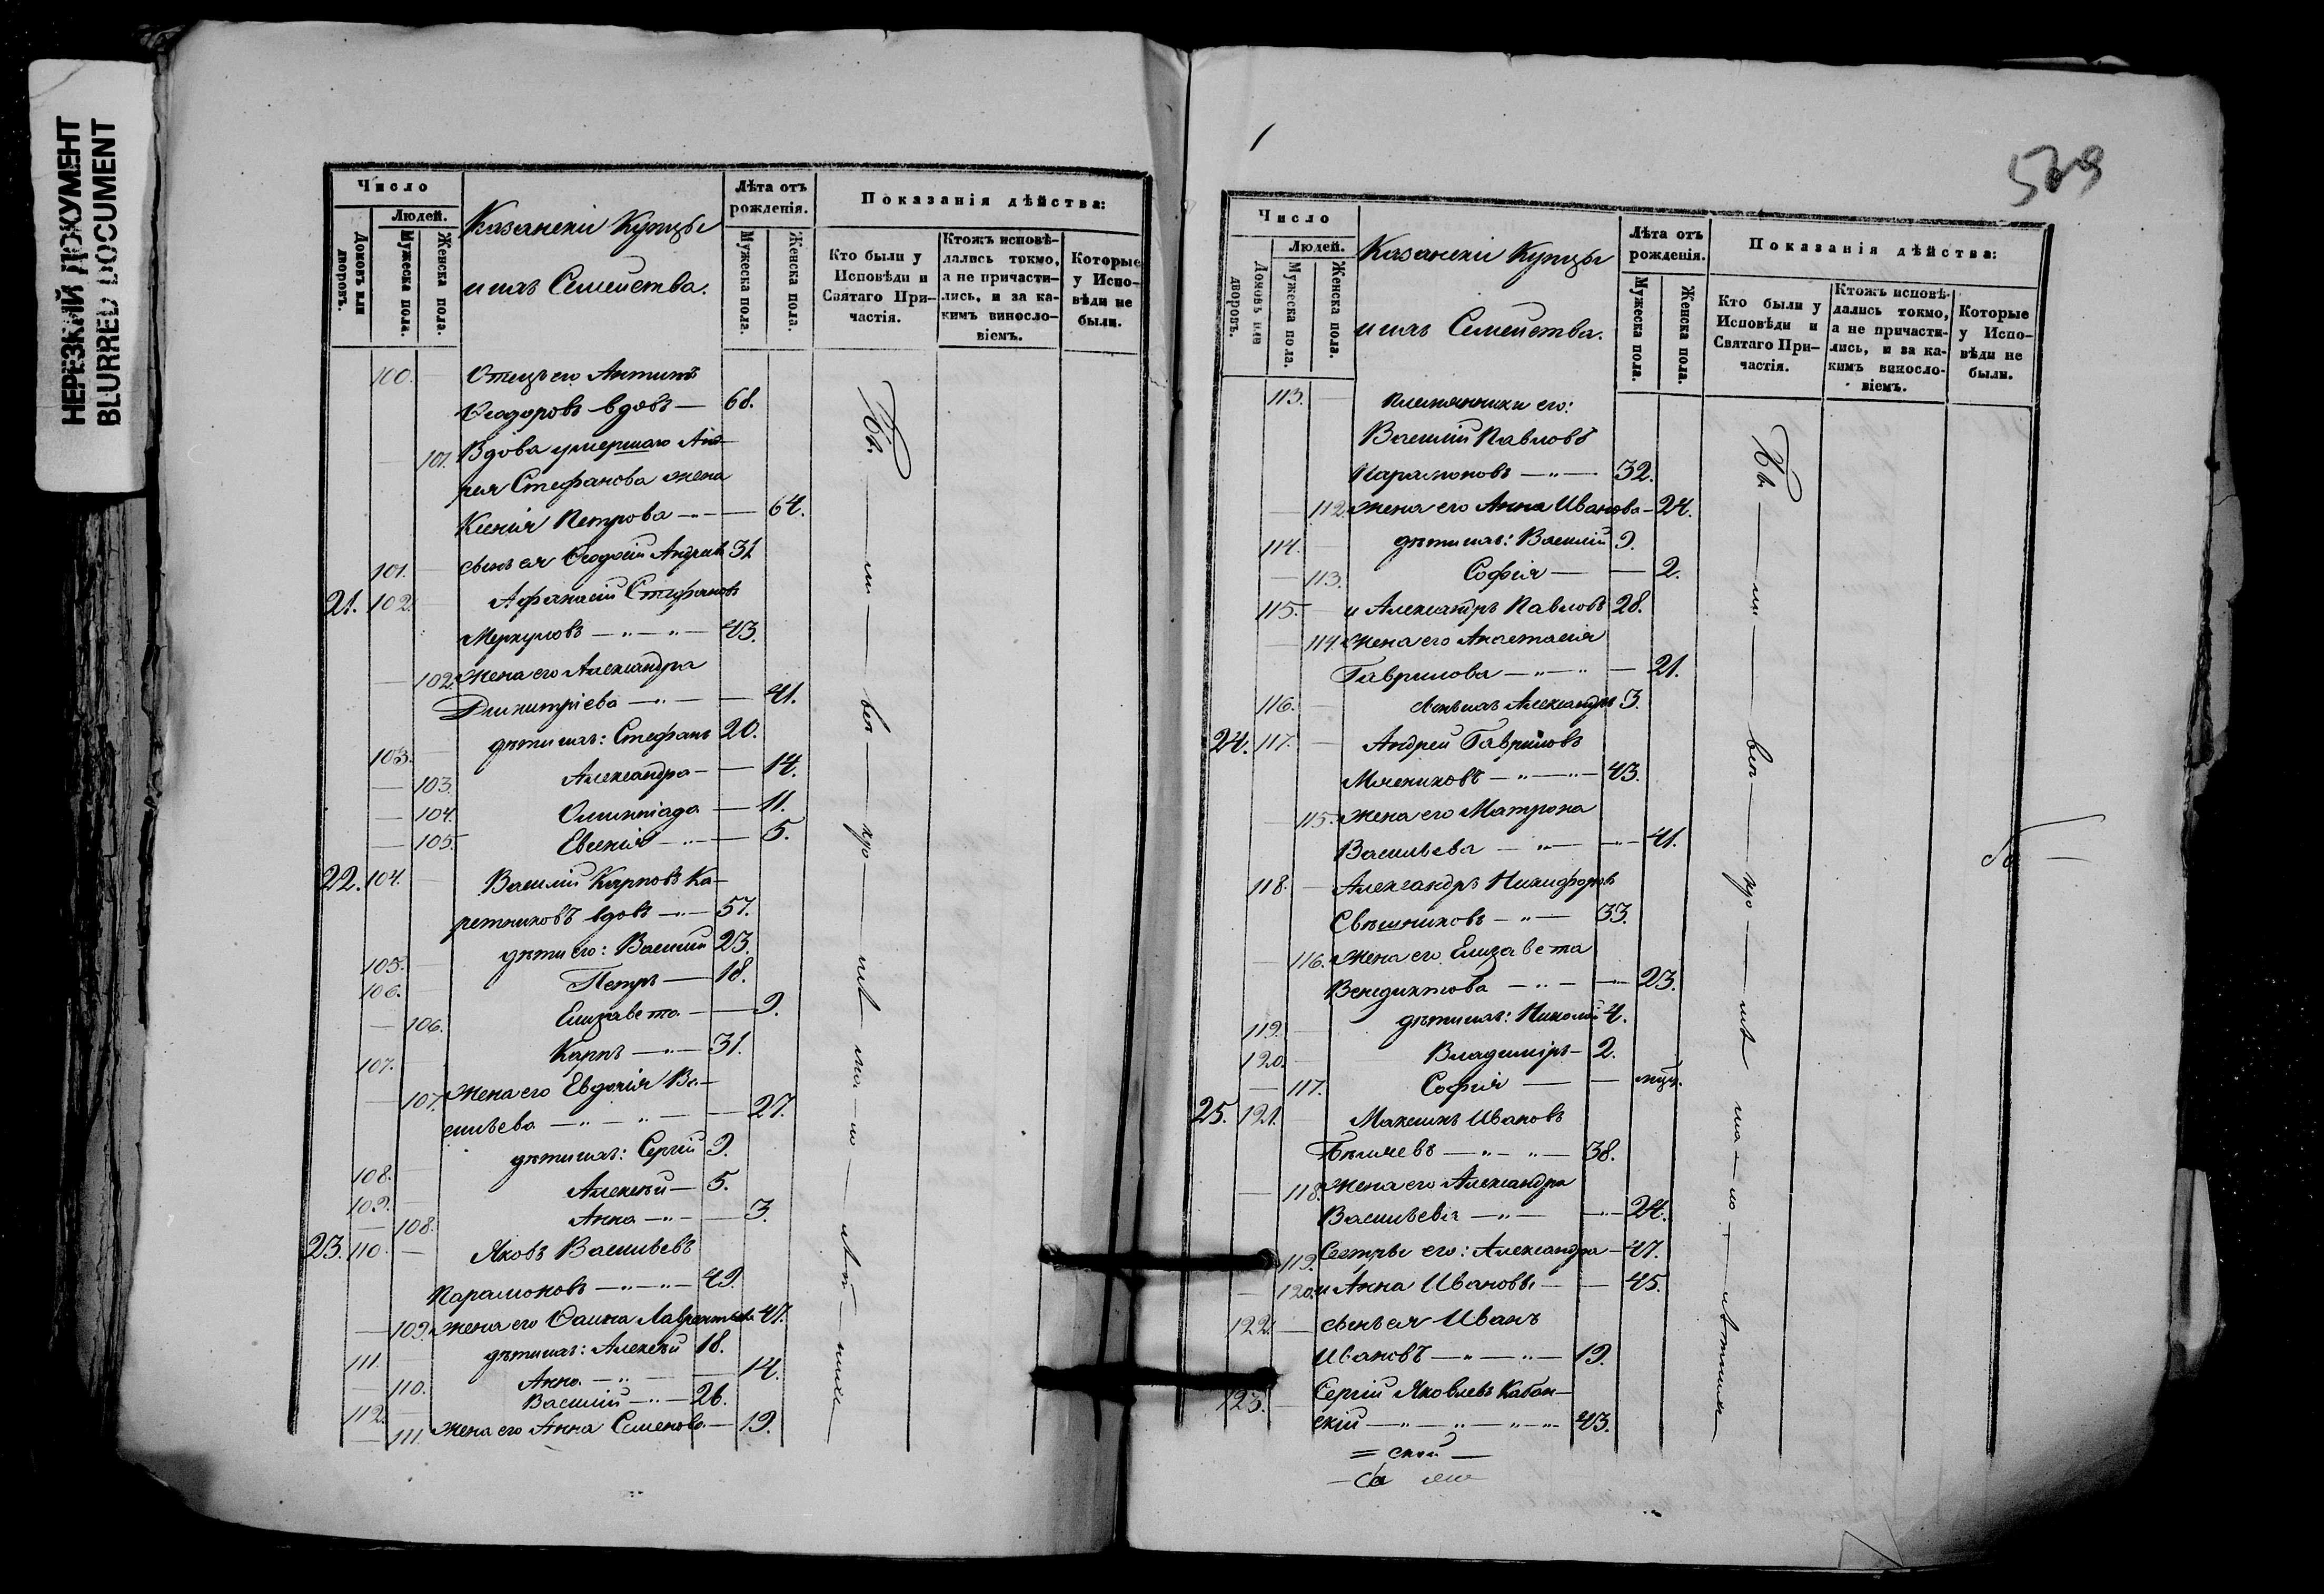 НЕРЕЗКИЙ ДОКУМЕНТ
BLURRED DOCUMENT
Число
Людей.
Домовъ или дворовъ.
Мужеска пола.
Женска пола.
Казанскіи Купцы
и ихъ Семейства.
Лѣта отъ рожденія.
Мужеска пола.
Женска пола.
Показанія дѣйства:
Кто были у Исповѣди и Святаго Причастія.
Ктожъ исповѣдались токмо, а не причастились, и за какимъ винословіемъ.
Которые у Исповѣди не были.
100. Отецъ его Антипъ
Ѳеодоровъ вдовъ — 68.
101. Вдова умершаго
Стефанова жена
Ксенія Петрова — 64.
101. сынъ ея Ѳеодосій Андреевъ 31
21. 102. Афанасій Стефановъ
Меркуловъ — 43.
102. Жена его Александра
Димитріева — 41.
103. дѣти ихъ: Стефанъ 20.
103. Александра — 14.
104. Олимпіада — 11.
105. Евгенія — 5.
22. 104. Василій Карповъ Ка-
ретниковъ вдовъ — 57.
105. дѣти его: Василій 23.
106. Петръ — 18.
106. Елизавета — 9.
107. Карпъ — 31.
107. Жена его Евдокія Ва-
сильева — 27.
108. дѣти ихъ: Сергій 9.
109. Алексѣй — 5.
108. Анна — 3.
23. 110. Яковъ Васильевъ
Парамоновъ — 49.
109. Жена его Ѳаина Лаврентьева 47.
111. дѣти ихъ: Алексѣй 18.
110. Анна — 14.
112. Василій — 26.
111. Жена его Анна Семенова — 19.
Бы — ли — всѣ — кро — мѣ ма — ло — лѣт — нихъ
529
Число
Людей.
Домовъ или дворовъ.
Мужеска пола.
Женска пола.
Казанскіи Купцы
и ихъ Семейства.
Лѣта отъ рожденія.
Мужеска пола.
Женска пола.
Показанія дѣйства:
Кто были у Исповѣди и Святаго Причастія.
Ктожъ исповѣдались токмо, а не причастились, и за какимъ винословіемъ.
Которые у Исповѣди не были.
113. племянники его:
Василій Павловъ
Парамоновъ — 32.
112. Жена его Анна Иванова — 24.
114. дѣти ихъ: Василій 9.
113. Софія — 2.
115. и Александръ Павловъ 28.
114. Жена его Анастасія
Гаврилова — 21.
116. сынъ ихъ Александръ 3.
24. 117. Андрей Гавриловъ
Мясниковъ — 43.
115. Жена его Матрона
Васильева — 41.
118. Александръ Никифоровъ
Свѣшниковъ — 33.
116. Жена его Елизавета
Венедиктова — 23.
119. дѣти ихъ: Николай 4.
120. Владиміръ — 2.
117. Софія —
25. 121. Максимъ Ивановъ
— 38.
118. Жена его Александра
Васильева — 24.
119. Сестры его: Александра — 47.
120. и Анна Ивановы — 45.
122. сынъ ея Иванъ
Ивановъ — 19.
123. Сергій Яковлевъ Кабан-
скій — 43.
Бы — ли — всѣ — кро — мѣ ма — ло — лѣтнихъ